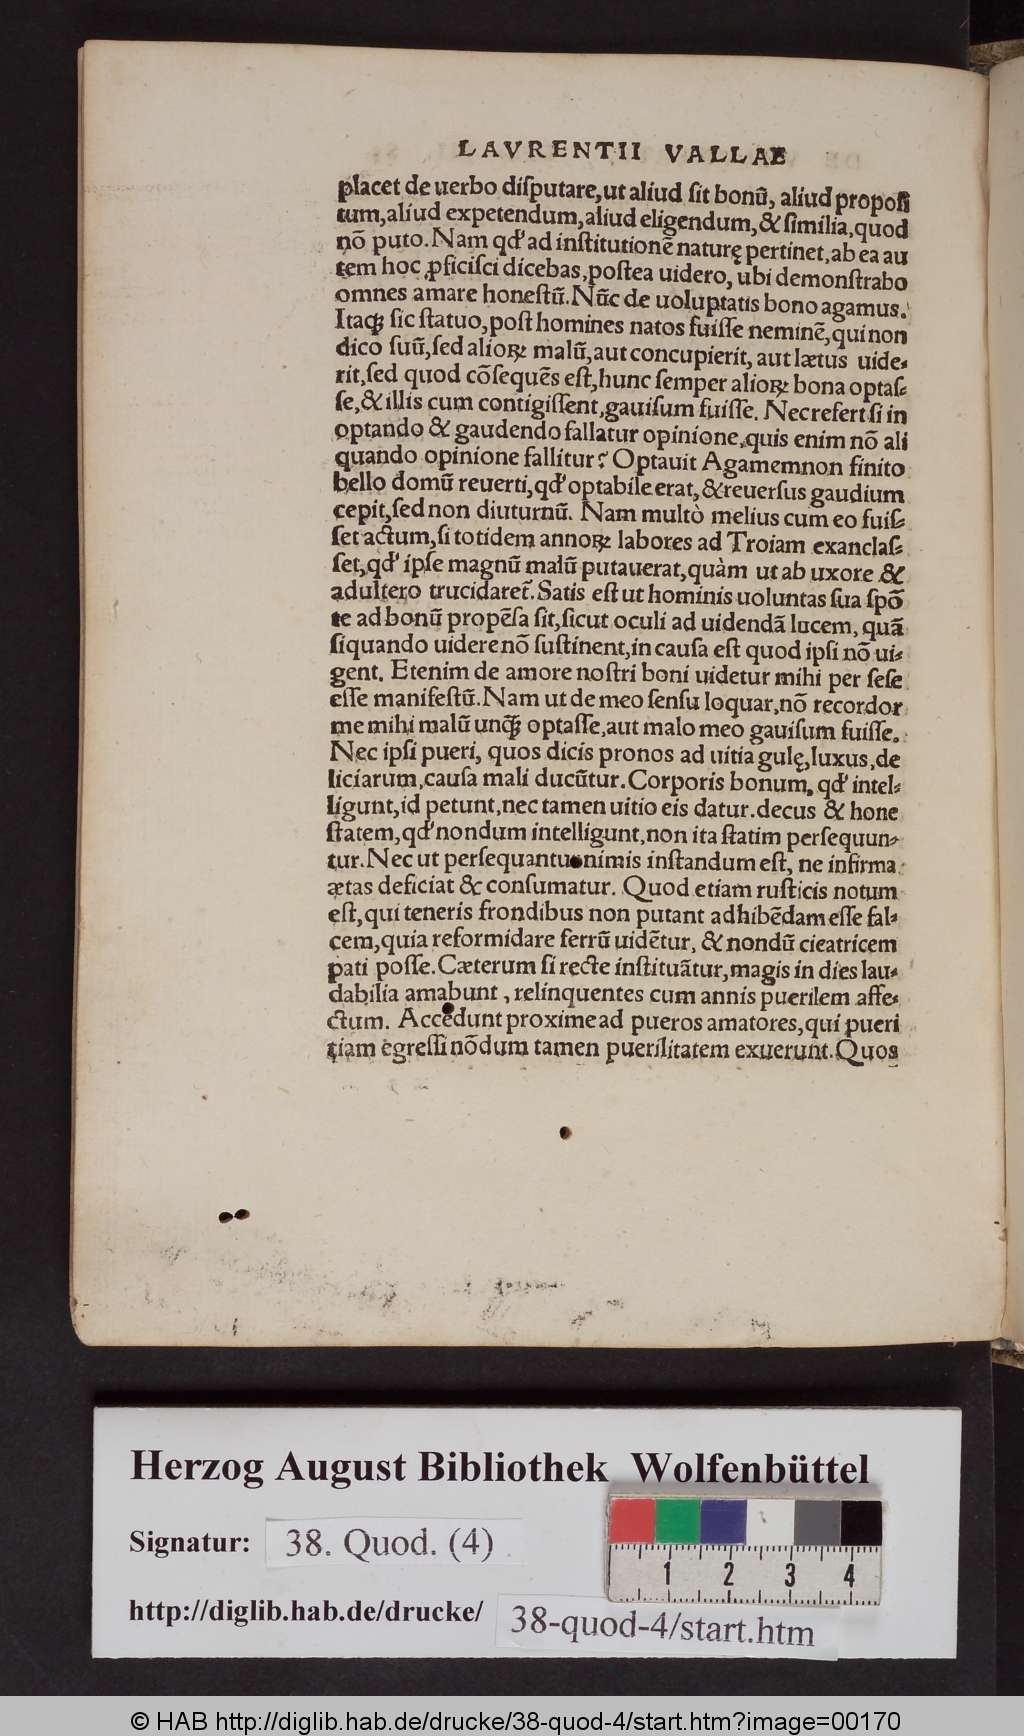 LAVRENTII VALLAE
placet de uerbo diſputare, ut aliud ſit bonũ, aliud propoſi
tum, aliud expetendum, aliud eligendum, & ſimilia, quod
nõ puto. Nam qđ ad inſtitutionẽ naturę pertinet, ab ea au
tem hoc ꝓficiſci dicebas, poſtea uidero, ubi demonſtrabo
omnes amare honeſtũ. Nũc de uoluptatis bono agamus.
Itaqꝫ ſic ſtatuo, poſt homines natos fuiſſe neminẽ, qui non
dico ſuũ, ſed alioꝝ malũ, aut concupierit, aut lætus uide-
rit, ſed quod cõſequẽs eſt, hunc ſemper alioꝝ bona optaſ-
ſe, & illis cum contigiſſent, gauiſum fuiſſe. Nec refert ſi in
optando & gaudendo fallatur opinione, quis enim nõ ali
quando opinione fallitur? Optauit Agamemnon finito
bello domũ reuerti, qđ optabile erat, & reuerſus gaudium
cepit, ſed non diuturnũ. Nam multò melius cum eo fuiſ-
ſet actum, ſi totidem annoꝝ labores ad Troiam exanclaſ-
ſet, qđ ipſe magnũ malũ putauerat, quàm ut ab uxore &
adultero trucidaret̃. Satis eſt ut hominis uoluntas ſua ſpõ
te ad bonũ propẽſa ſit, ſicut oculi ad uidendã lucem, quã
ſiquando uidere nõ ſuſtinent, in cauſa eſt quod ipſi nõ ui-
gent. Etenim de amore noſtri boni uidetur mihi per ſeſe
eſſe manifeſtũ. Nam ut de meo ſenſu loquar, nõ recordor
me mihi malũ unqꝫ̃ optaſſe, aut malo meo gauiſum fuiſſe.
Nec ipſi pueri, quos dicis pronos ad uitia gulę, luxus, de
liciarum, cauſa mali ducũtur. Corporis bonum, qđ intel-
ligunt, id petunt, nec tamen uitio eis datur. decus & hone
ſtatem, qđ nondum intelligunt, non ita ſtatim perſequun-
tur. Nec ut perſequantu nimis inſtandum eſt, ne infirma
ætas deficiat & conſumatur. Quod etiam ruſticis notum
eſt, qui teneris frondibus non putant adhibẽdam eſſe fal-
cem, quia reformidare ferrũ uidẽtur, & nondũ cicatricem
pati poſſe. Cæterum ſi recte inſtituãtur, magis in dies lau-
dabilia amabunt, relinquentes cum annis puerilem affe-
ctum. Accedunt proxime ad pueros amatores, qui pueri
tiam egreſſi nõdum tamen puerilitatem exuerunt. Quos
Herzog August Bibliothek Wolfenbüttel
Signatur: 38. Quod. (4)
1 2 3 4
http://diglib.hab.de/drucke/ 38-quod-4/start.htm
© HAB http://diglib.hab.de/drucke/38-quod-4/start.htm?image=00170